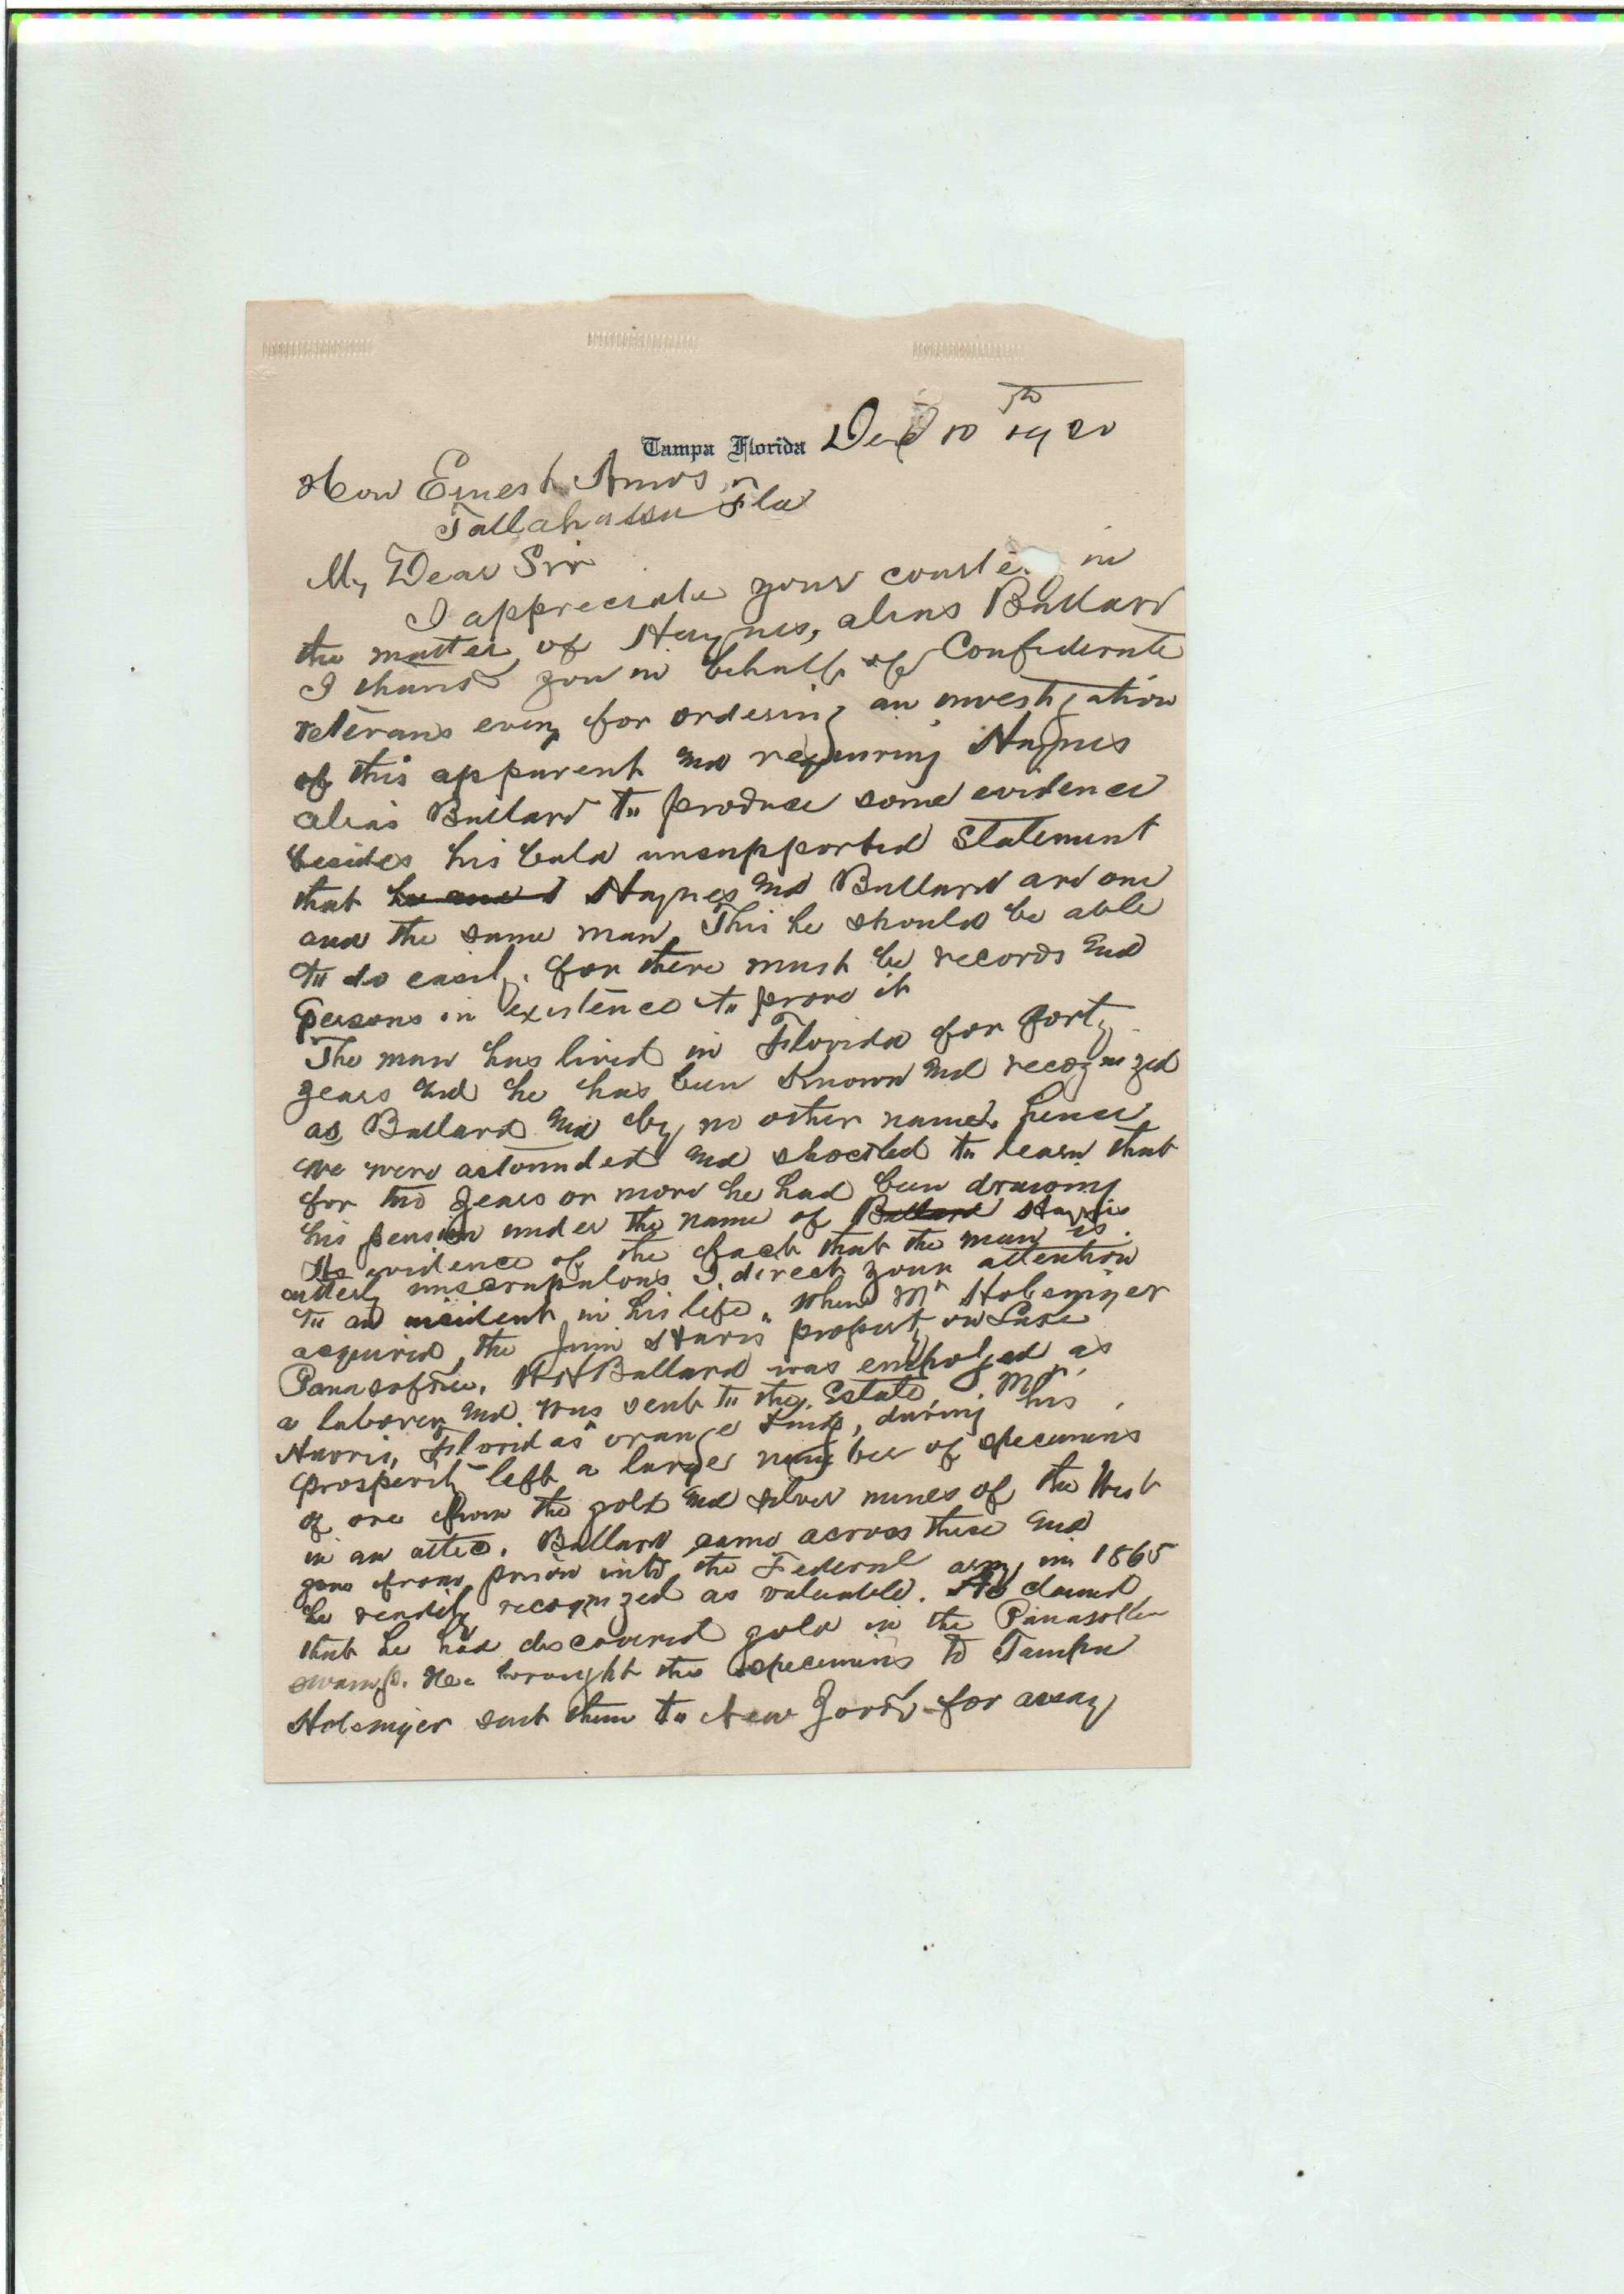 Tampa Florida Dec 10th 1920
Hon Ernest Amos
Tallahassee Fla
My Dear Sir
I appreciate your courte in
the matter of Haynes, alias Bullard
I thank you in behalf of Confederate
veterans every for ordering an investigation
of this apparent and requiring Haynes
alias Bullard to produce some evidence
besides his bald unsupported statement
that he and Haynes and Bullard are one
and the same man. This he should be able
to do easily. for there must be records and
persons in existence to prove it
The man has lived in Florida for forty
years and he has been known and recognized
as Bullard and by no other name, hence
we were astounded and shocked to learn that
for two years or more he had been drawing
his pension under the name of Bullard Haynes
As evidence of the fact that the man is
utterly unscrupulous I direct your attention
to an incident in his life. When Mr Holsinger
acquired the Jim Harris property on Lake
Panasofkee. H H Bullard was employed as
a laborer and was sent to the Estate. Mr
Harris, Floridas orange king, during his
prosperity left a large number of specimens
of ore from the gold and silver mines of the West
in an attic. Bullard came across these and
gone from prison into the Federal army in 1865
he readily recognized as valuable. He claimed
that he had discovered gold in the Panasoffkee
swamp. He brought the specimens to Tampa
Holsinger sent them to New York for assay